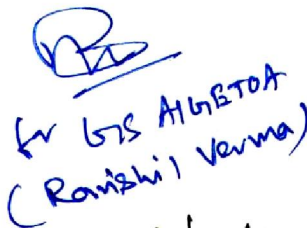 for GIS AIGETOA
(Ravishil Verma)